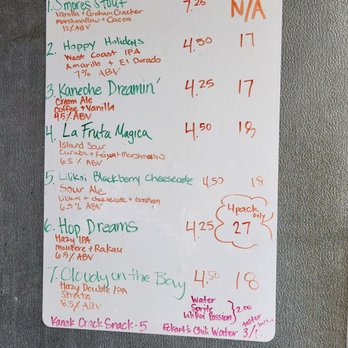 1. S'mores Stout 7.25 N/A
Vanilla + Graham Cracker
Marshmallow + Cacao
12% ABV
2. Hoppy Holidays 4.50 17
West Coast IPA
Amarillo + El Dorado
7% ABV
3. Kaneohe Dreamin' 4.25 17
Cream Ale
Coffee + Vanilla
4.5% ABV
4. La Fruta Magica 4.50 18
Island Sour
Guava + Feijoa + Marshmallow
6.5% ABV
5. Lilikoi Blackberry Cheesecake 4.50 18
Sour Ale
Lilikoi + cheesecake + Graham
6.5% ABV
6. Hop Dreams 4.25 4pack only 27
Hazy IPA
Moutere + Rakau
6.5% ABV
7. Cloudy on the Bay 4.50 18
Hazy Double IPA
Strata
8.5% ABV
Water
Sprite
Lilikoi Passion
2.00
Kanak Crack Snack - 5
Chili Water 3/